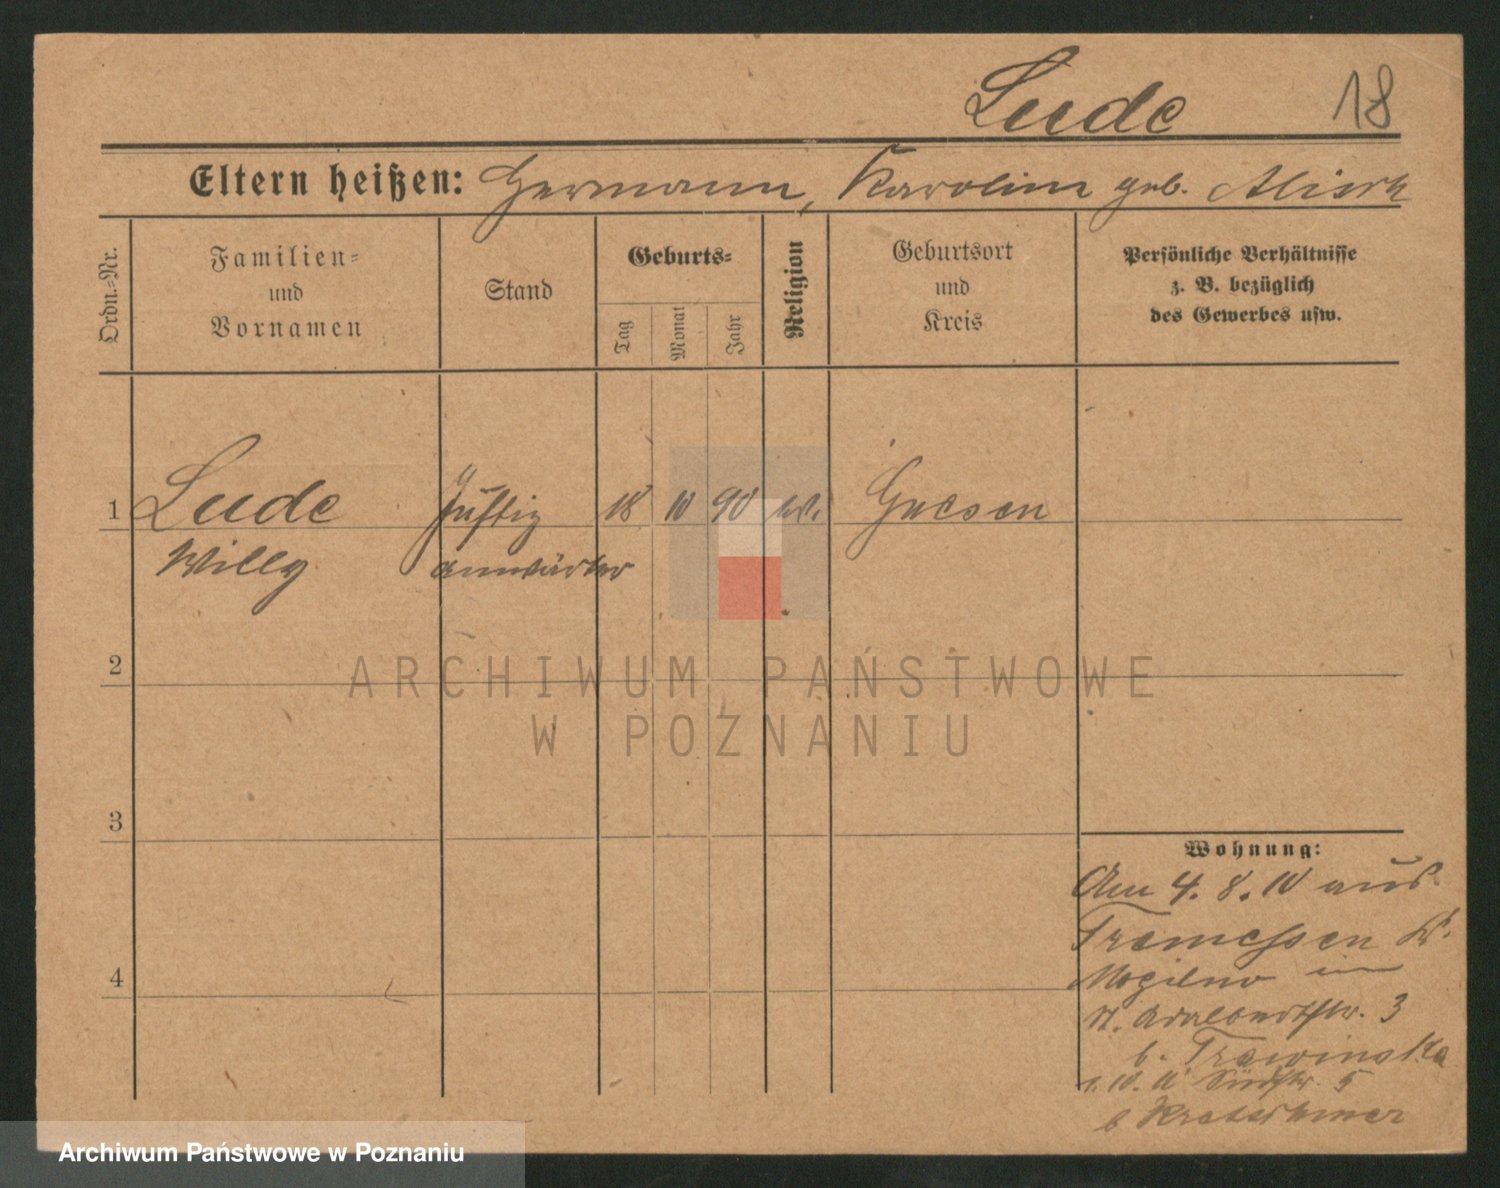 Lude 18
Eltern heißen: Hermann, Karoline geb.
Ordn.-Nr.
Familien-
und
Vornamen
Stand
Geburts-
Tag
Monat
Jahr
Religion
Geburtsort
und
Kreis
Persönliche Verhältnisse
z. B. bezüglich
des Gewerbes usw.
1 Lude Justiz 18 10 90 ev. Gnesen
Willy anwärter
2
3
4
Wohnung:
Am 4. 8. 10 aus
Tremessen Kr.
Mogilno in
St. Adalbertstr. 3
b. Trawinska
1. 10. 11 Südstr. 5
b Kretschmer
ARCHIWUM PAŃSTWOWE
W POZNANIU
Archiwum Państwowe w Poznaniu